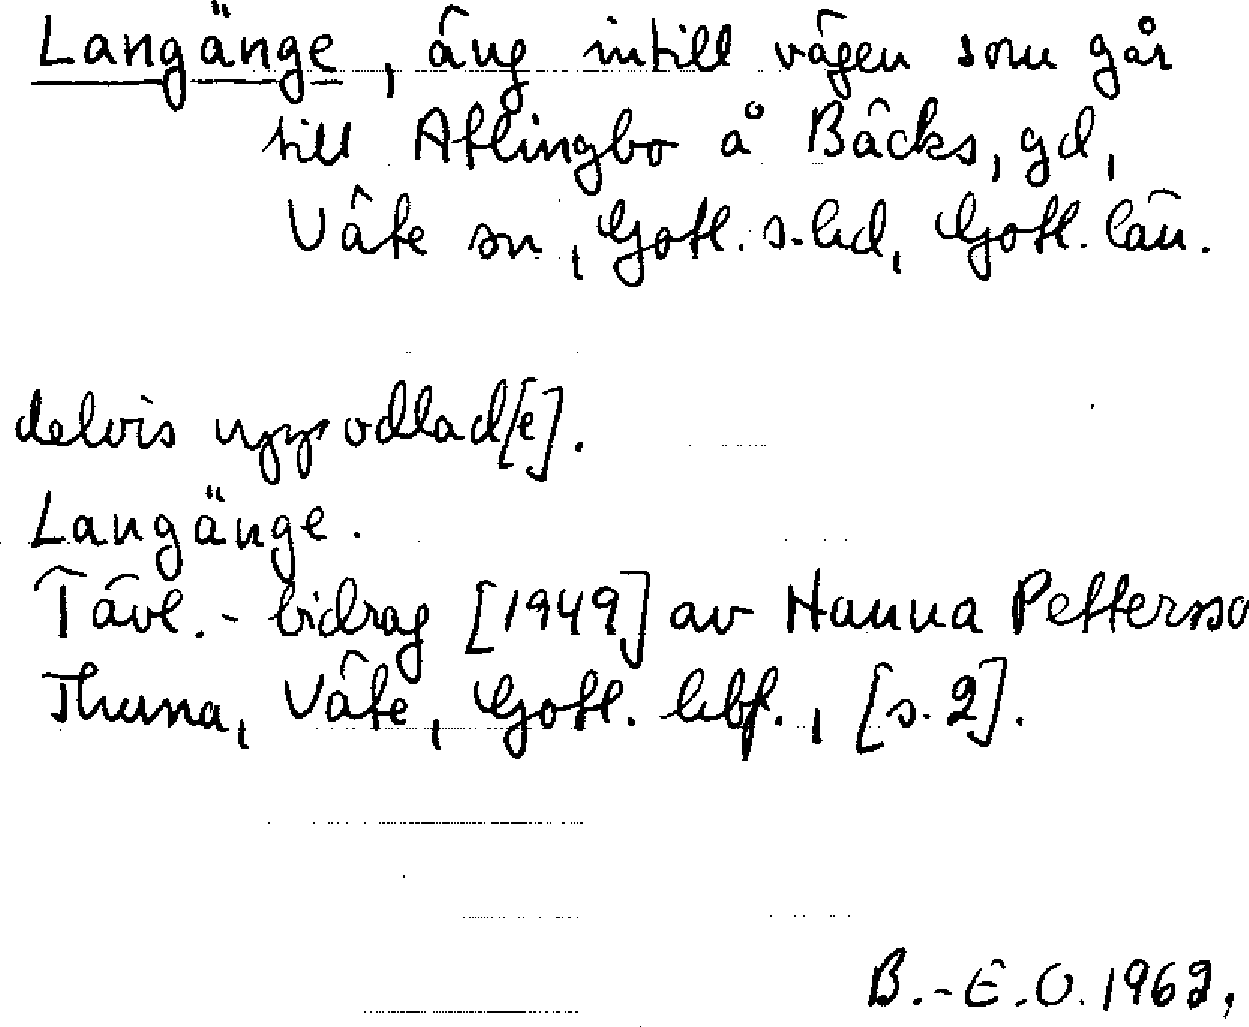 Langänge, äng intill vägen som går
till Atlingbo å Bäcks, gd,
Väte sn, Gotl. s. hd, Gotl. län.
delvis uppodlad[e].
Langänge.
Tävl.-bidrag [1949] av Hanna Petterso
Thuna, Väte, Gotl. hbf., [s. 2].
B.-E.O. 1962,